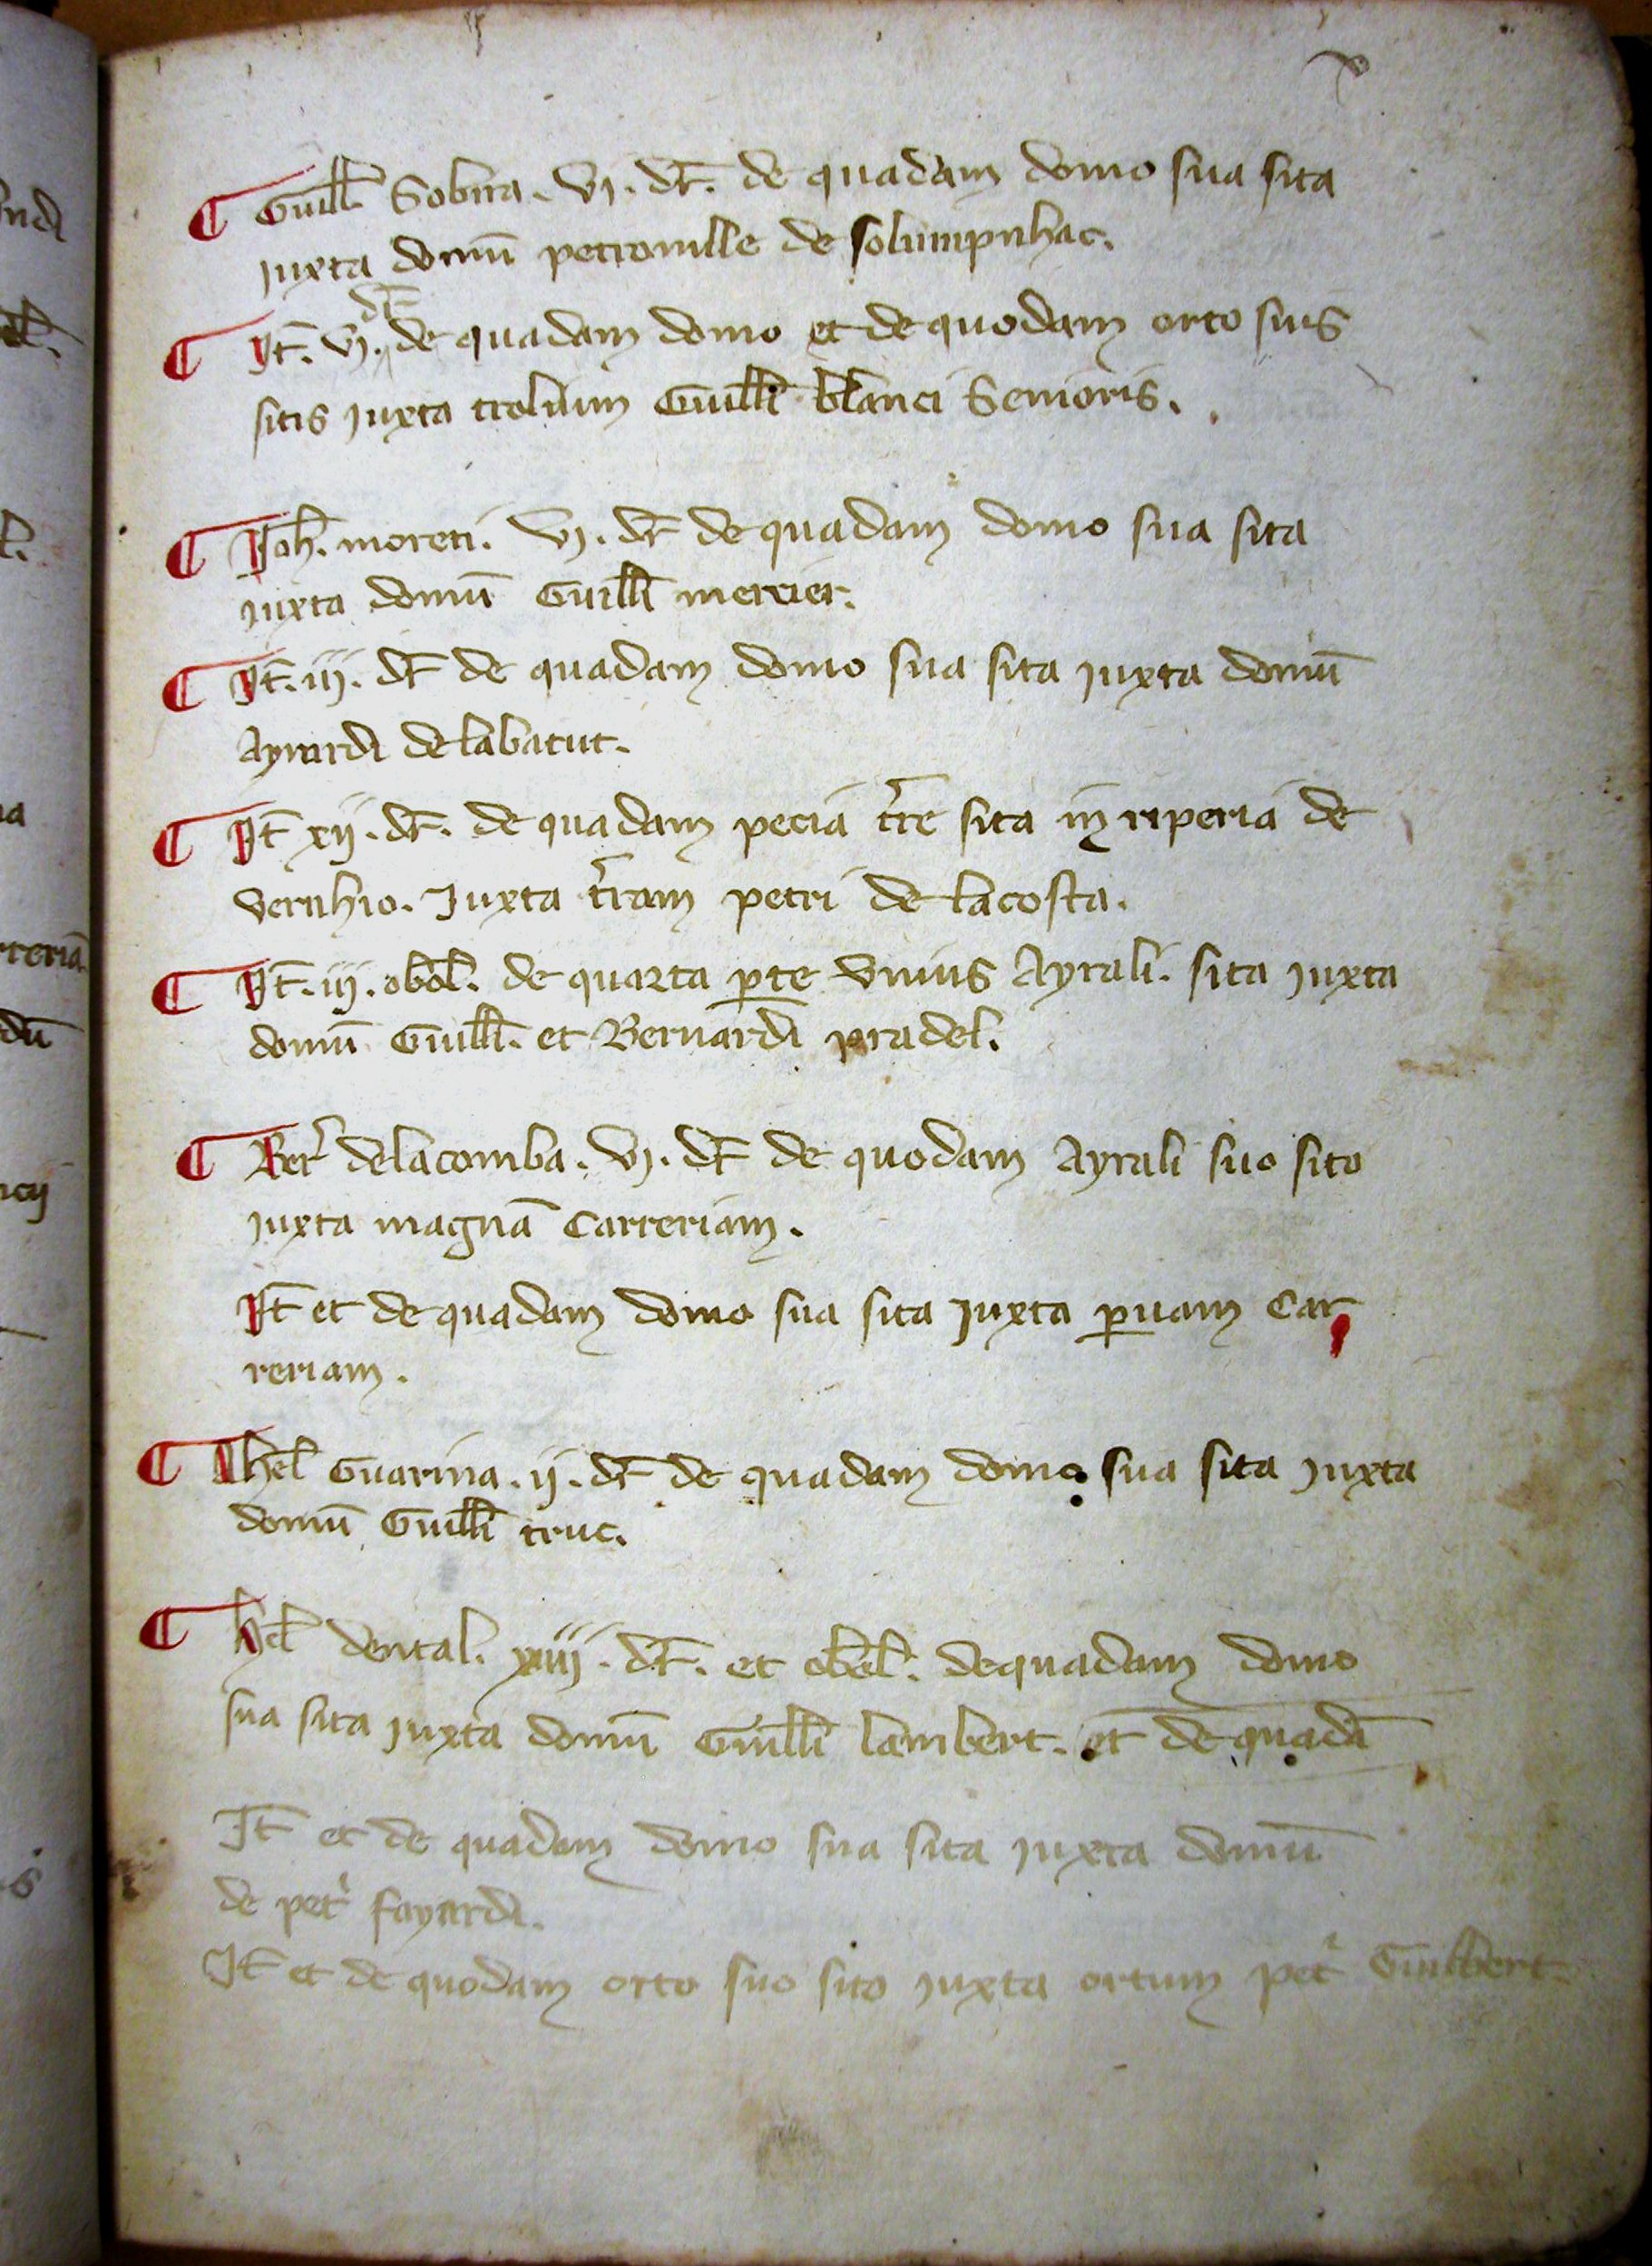 x
¶ Guill̄ Sobira. vj. dr̄. de quadam domo sua sita
juxta domū petronille de solumpnhac.
dr̄
¶ It̄. vj. de quadam domo et de quodam orto suis
sitis juxta trolium Guill̄i blanci Senioris.
¶ Joh̄. moreti. vj. dr̄ de quadam domo sua sita
juxta domū Guill̄i mercier.
¶ It̄. iij. dr̄ de quadam domo sua sita juxta domū
Ayrardi de labatut.
¶ It̄ xij. dr̄. de quadam pecia tr̄re sita in riperia de
vernhio. Juxta tr̄ram petri de lacosta.
¶ It̄. iij. obol̄. de quarta ꝑte vnius Ayrali. sita juxta
domū Guill̄i. et Bernardi pradel.
¶ Ber̄ delacomba. vj. dr̄ de quodam Ayrali suo sito
juxta magnā Carreriam.
It̄ et de quadam domo sua sita juxta ꝑuam Car
reriam.
¶ Ahel̄ Guarina. ij. dr̄ de quadam domo sua sita juxta
domū Guill̄i truc.
¶ hel̄ dental. xiiij. dr̄. et obol̄. dequadam domo
sua sita juxta domū Guill̄i lambert. et de quadā
It̄ et de quadam domo sua sita juxta domū
de pet̄ fayardi.
It̄ et de quodam orto suo sito juxta ortum pet̄ Guilbert.